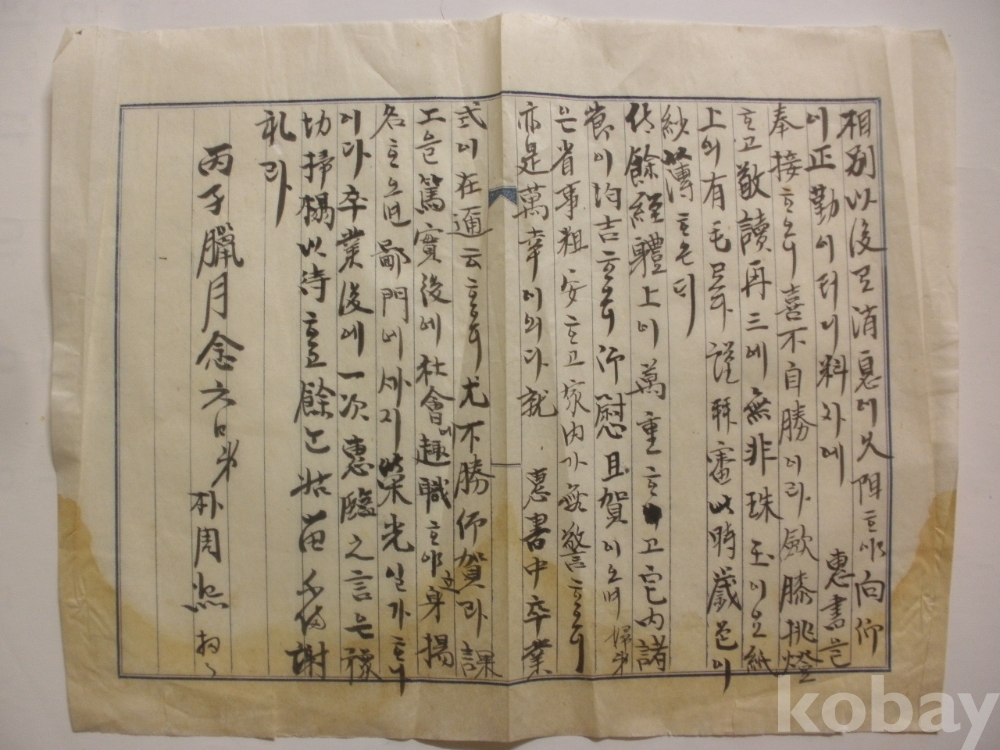 相別以後로消息이久阻하야向仰
이正勤이더니料外에 惠書를
奉接하오니喜不自勝이라歛膝挑燈
하고敬讀再三에無非珠玉이오紙
上의有毛로다謹聯審此時歲色이
紗薄하온디
侍餘經體上이萬重하고宅內諸
節이均吉하오니仰慰且賀이오며 婦弟
은省事粗安하고家內가無警하오니
亦是萬幸이외다就 惠書中卒業
式이在邇云하오니尤不勝仰賀라課
工을篤實後에社會에趣職하야立身揚
名하오면鄙門에까지榮光일가하니
이다卒業後에一次惠臨之言은預
切掃榻以待하고餘는姑留不備謝
礼라
丙子臘月念六日弟
朴周熙 拜拜
kobay